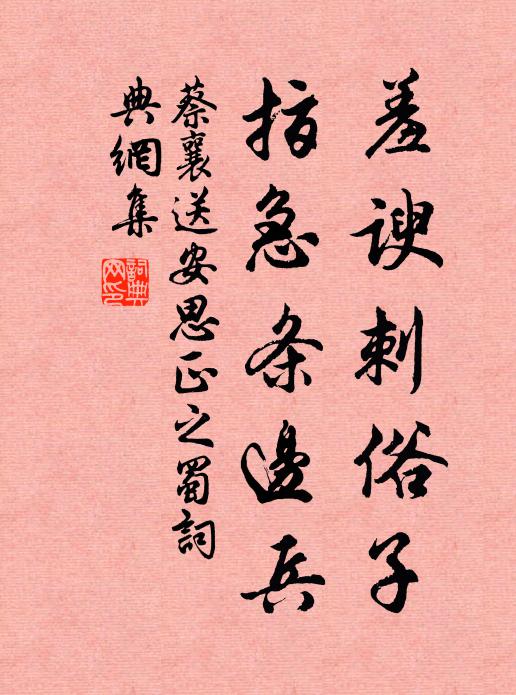 羞谀刺俗子
指急条邊兵
蔡襄送安思正之蜀詞
典網集
詞典網印